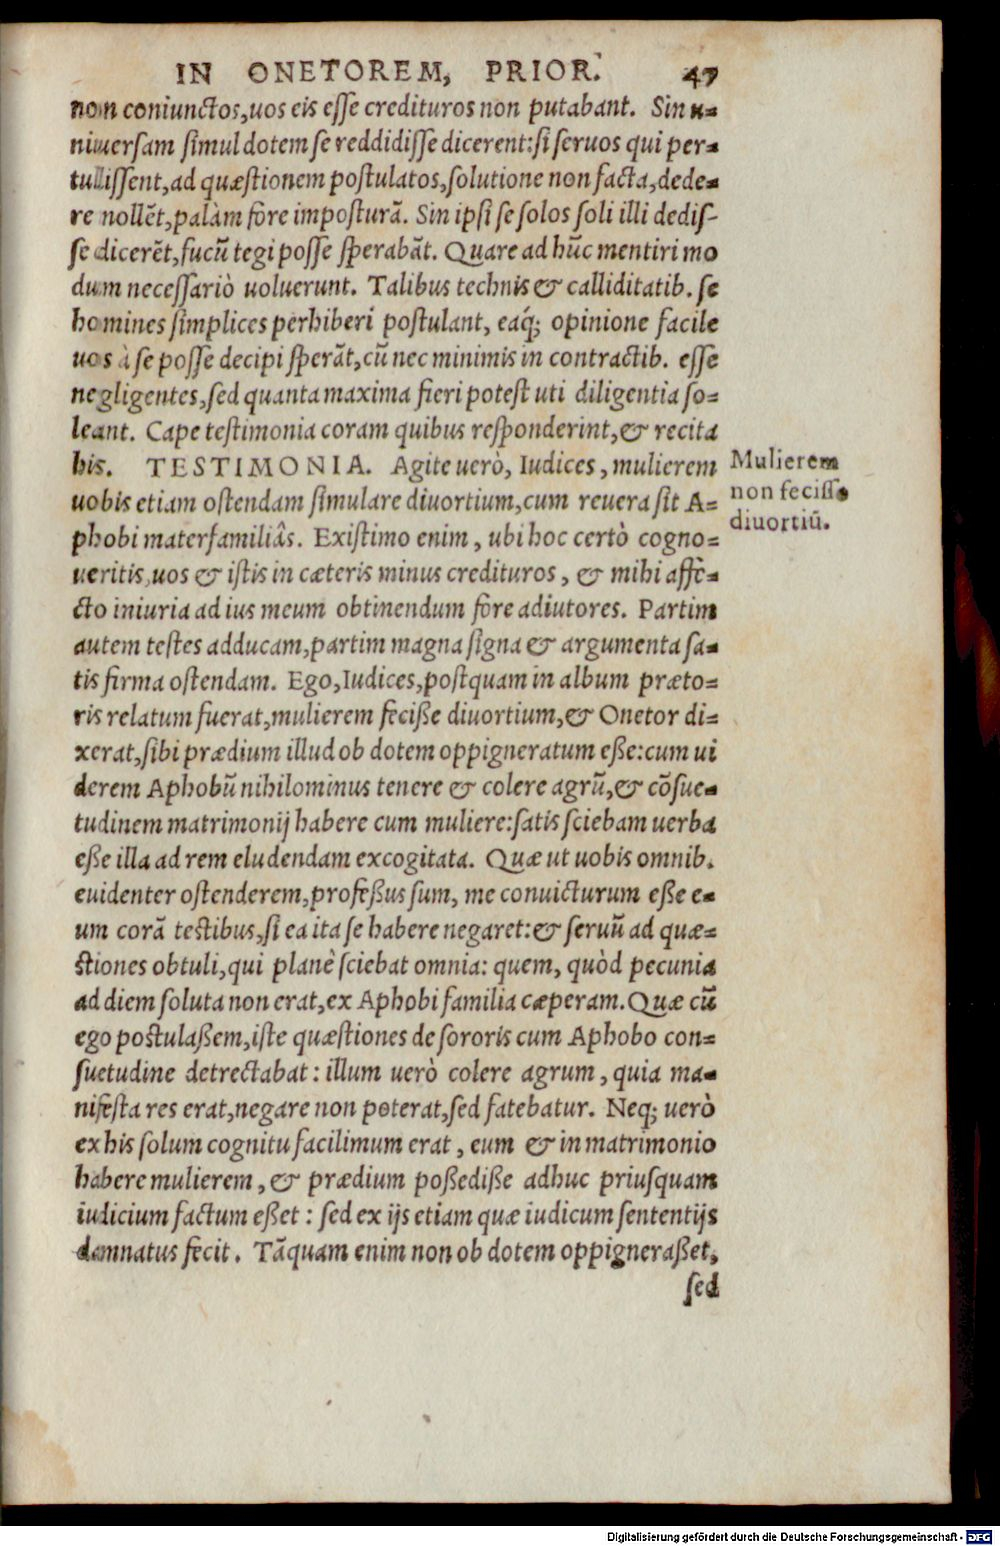 IN ONETOREM, PRIOR. 47
non coniunctos,uos eis esse credituros non putabant. Sin u-
niuersam simul dotem se reddidisse dicerent:si seruos qui per-
tulissent,ad quæstionem postulatos,solutione non facta,dede-
re nollẽt,palàm fore imposturã. Sin ipsi se solos soli illi dedis-
se dicerẽt,fucũ tegi posse sperabãt. Quare ad hũc mentiri mo
dum necessariò uoluerunt. Talibus technis & calliditatib. se
homines simplices perhiberi postulant, eaq́; opinione facile
uos à se posse decipi sperãt,cũ nec minimis in contractib. esse
negligentes,sed quanta maxima fieri potest uti diligentia so-
leant. Cape testimonia coram quibus responderint,& recita
his. TESTIMONIA. Agite uerò, Iudices, mulierem
uobis etiam ostendam simulare diuortium,cum reuera sit A-
phobi materfamiliâs. Existimo enim, ubi hoc certò cogno-
ueritis,uos & istis in cæteris minus credituros, & mihi affe-
cto iniuria ad ius meum obtinendum fore adiutores. Partim
autem testes adducam,partim magna signa & argumenta sa-
tis firma ostendam. Ego,Iudices,postquam in album præto-
ris relatum fuerat,mulierem feciße diuortium,& Onetor di-
xerat,sibi prædium illud ob dotem oppigneratum eße:cum ui
derem Aphobũ nihilominus tenere & colere agrũ,& cõsue-
tudinem matrimonij habere cum muliere:satis sciebam uerba
eße illa ad rem eludendam excogitata. Quæ ut uobis omnib.
euidenter ostenderem,profeßus sum, me conuicturum eße e-
um corã testibus,si ea ita se habere negaret:& seruũ ad quæ-
stiones obtuli,qui planè sciebat omnia: quem, quòd pecunia
ad diem soluta non erat,ex Aphobi familia cæperam.Quæ cũ
ego postulaßem,iste quæstiones de sororis cum Aphobo con-
suetudine detrectabat: illum uerò colere agrum, quia ma-
nifesta res erat,negare non poterat,sed fatebatur. Neq; uerò
ex his solum cognitu facilimum erat, eum & in matrimonio
habere mulierem, & prædium poßediße adhuc priusquam
iudicium factum eßet: sed ex ijs etiam quæ iudicum sententijs
damnatus fecit. Tãquam enim non ob dotem oppigneraßet,
sed
Mulierem
non fecisse
diuortiũ.
Digitalisierung gefördert durch die Deutsche Forschungsgemeinschaft - DFG